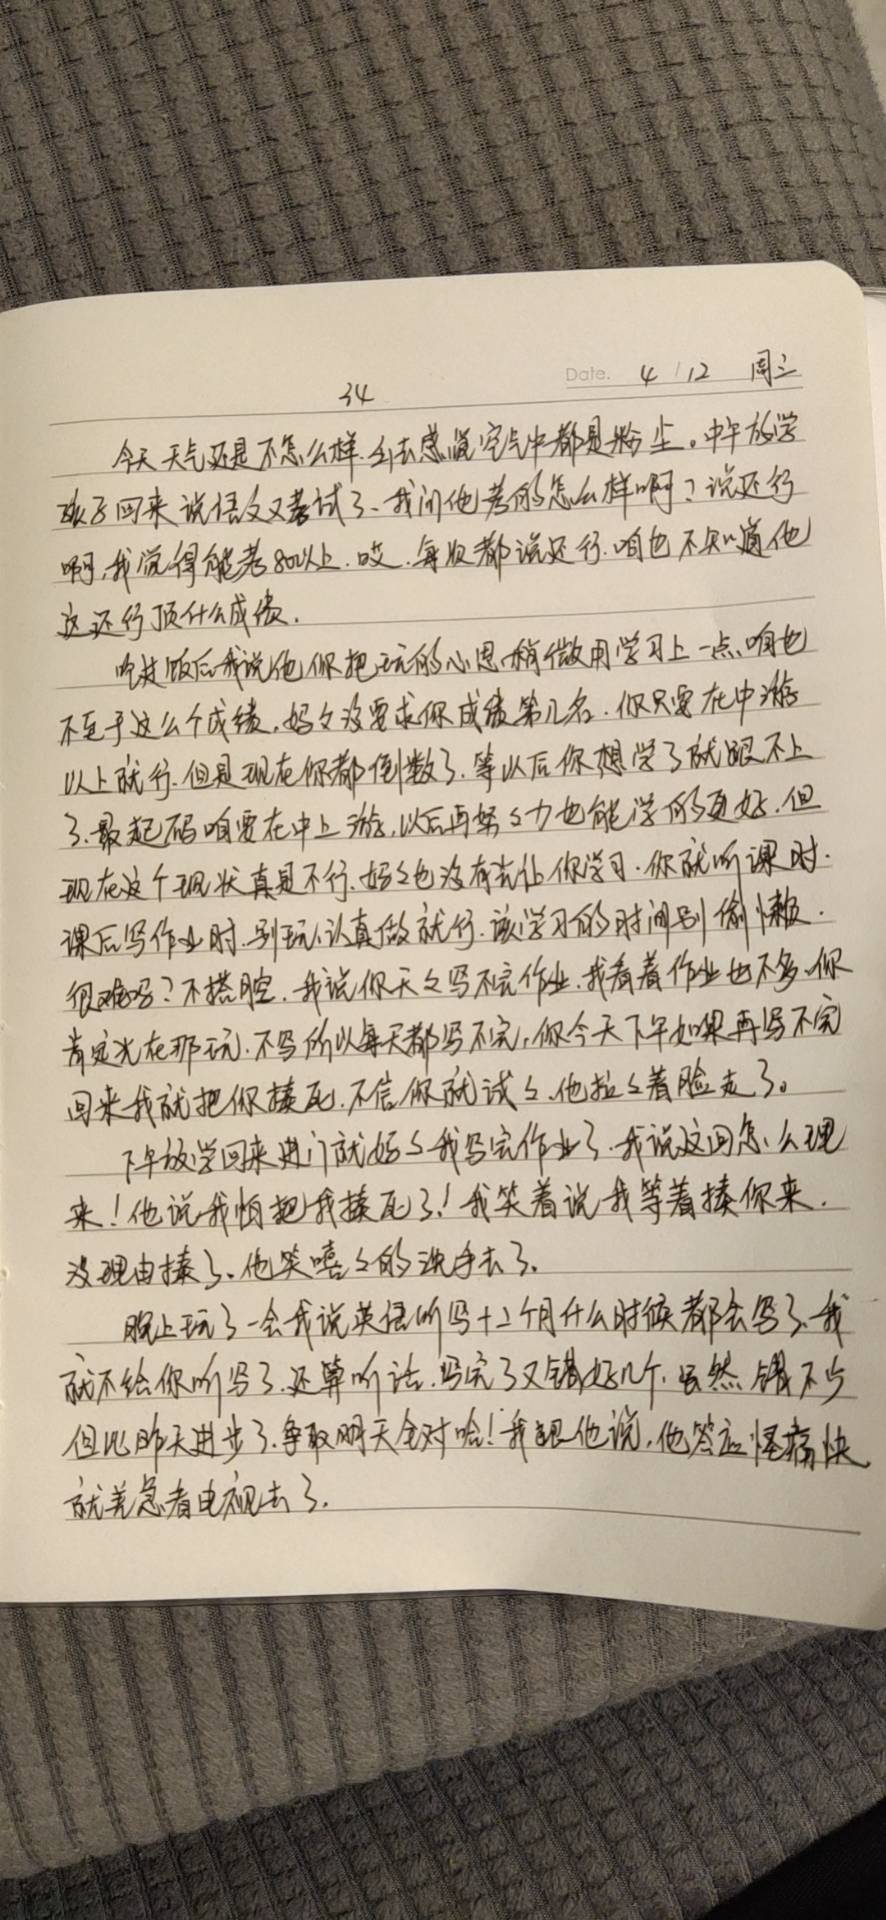 34
Date. 4/12 周三
今天天气还是不怎么样.出去感觉空气中都是粉尘。中午放学
孩子回来说语文又考试了、我问他考的怎么样啊？说还行
啊,我觉得能考80以上.哎.每次都说还行.咱也不知道他
这还行顶什么成绩.
吃过饭后我说他你把玩的心思稍微用学习上一点、咱也
不至于这么个成绩,妈々没要求你成绩第几名.你只要在中游
以上就行.但是现在你都倒数了.等以后你想学了就跟不上
了.最起码咱要在中上游,以后再努々力也能学的更好.但
现在这个现状真是不行.妈々也没有光让你学习.你就听课时.
课后写作业时.别玩、认真做就行.该学习的时间别偷懒.
很难吗？不搭腔.我说你天々写不完作业.我看着作业也不多.你
肯定光在那玩.不写所以每天都写不完,你今天下午如果再写不完
回来我就把你揍死.不信你就试々.他拉々着脸走了。
下午放学回来进门就妈々我写完作业了.我说这回怎么理
来！他说我怕把我揍死了！我笑着说我等着揍你来.
没理由揍了、他笑嘻々的洗手去了.
晚上玩了一会我说英语听写十二个月什么时候都会写了、我
就不给你听写了.还算听话.写完了又错好几个.虽然错不少
但比昨天进步了.争取明天全对哈！我跟他说,他答应怪痛快
就着急看电视去了.